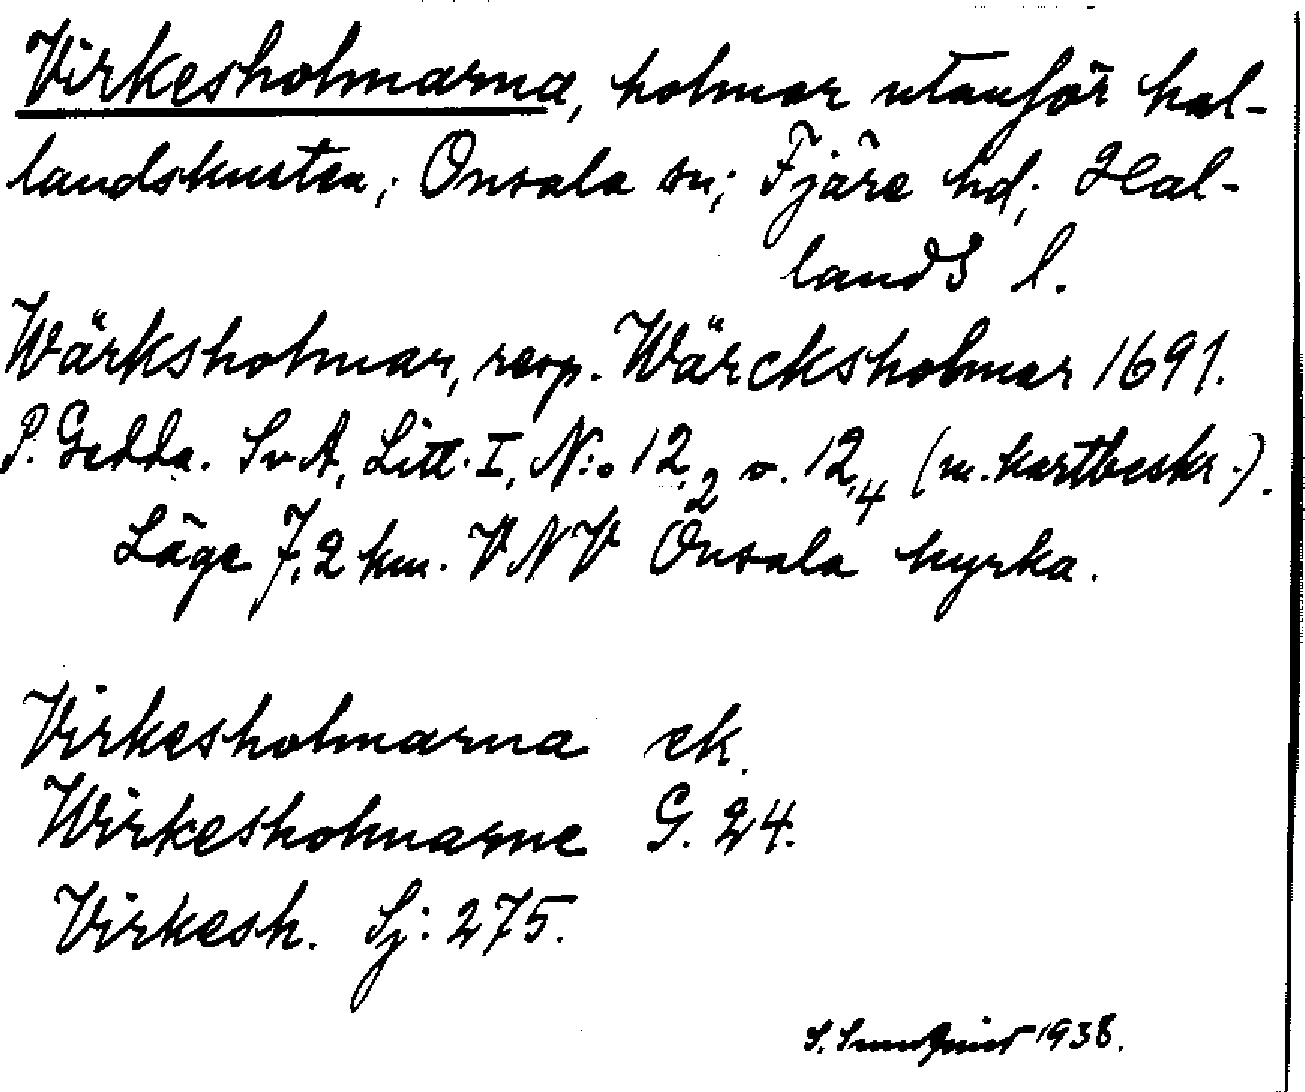 Virkesholmarna, holmar utanför hal-
landskusten; Onsala sn; Fjäre hd; Hal-
lands l.
Wärksholmar, resp. Wärcksholmar 1691.
P. Gedda. SvA, Litt. I, N:o 12,2 o. 12,4 (m. kartbeskr.).
Läge 7,2 km. VNV Onsala kyrka.
Virkesholmarna ek.
Wirkesholmarne G. 24.
Virkesh. Sj: 275.
S. Sundquist 1938.